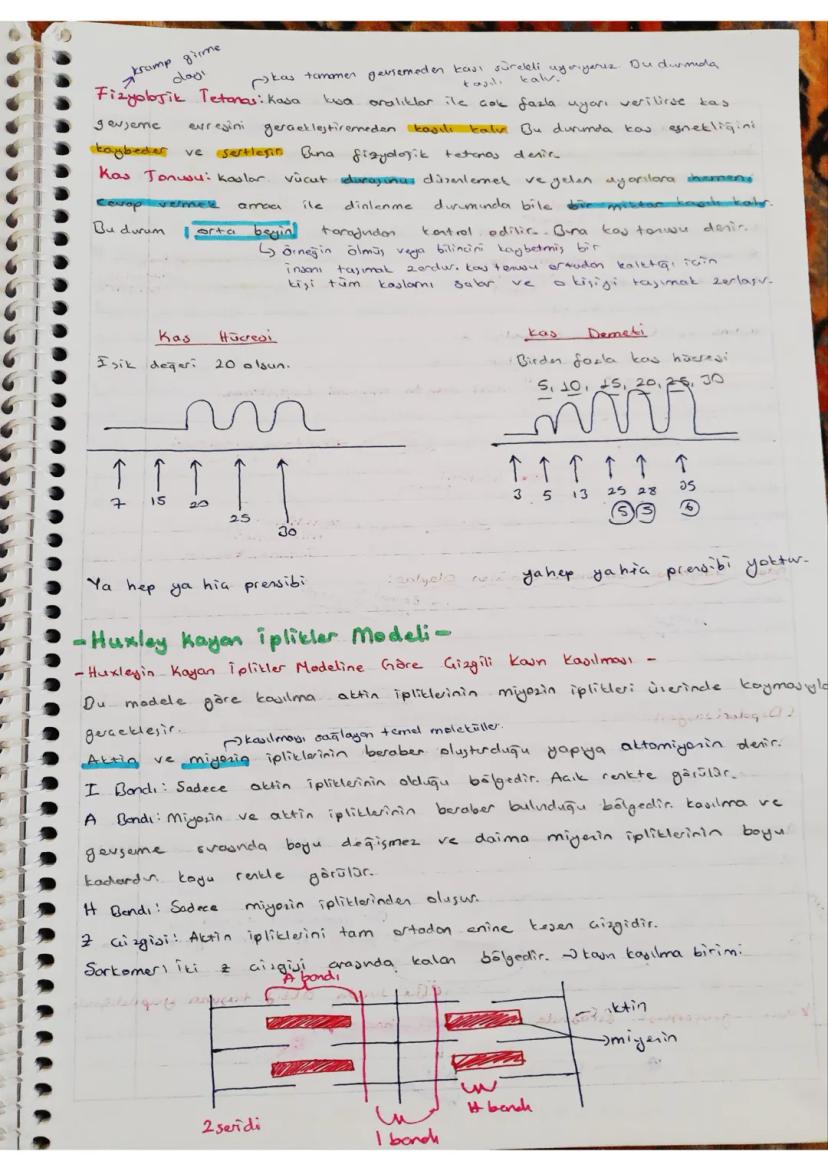 kramp girme olayı
kas tamamen gevşemeden kası sürekli uyarıyoruz. Bu durumda kasılı kalır.
Fizyolojik Tetanos: Kasa kısa aralıklar ile çok fazla uyarı verilirse kas
gevşeme evresini gerçekleştiremeden kasılı kalır Bu durumda kas esnekliğini
kaybeder ve sertleşir Buna fizyolojik tetanos denir.
Kas Tonusu: Kaslar vücut duruşunu düzenlemek ve gelen uyarılara hemen
cevap vermek amacı ile dinlenme durumunda bile bir miktar kasılı kalır.
Bu durum orta beyin tarafından kontrol edilir. Buna kas tonusu denir.
örneğin ölmüş veya bilincini kaybetmiş bir
insanı taşımak zordur. kas tonusu ortadan kalktığı için
kişi tüm kaslarını salar ve o kişiyi taşımak zorlaşır.
Kas Hücresi
Eşik değeri 20 olsun.
7 15 20 25 30
Ya hep ya hiç prensibi
Kas Demeti
Birden fazla kas hücresi
5, 10, 15, 20, 25, 30
3 5 13 25 28 35
5 5 6
ya hep ya hiç prensibi yoktur.
- Huxley Kayan İplikler Modeli -
- Huxleyin Kayan İplikler Modeline Göre Çizgili Kasın Kasılması -
Bu modele göre kasılma aktin ipliklerinin miyozin iplikleri üzerinde kaymasıyla
gerçekleşir.
kasılmayı sağlayan temel moleküller.
Aktin ve miyozin ipliklerinin beraber oluşturduğu yapıya aktomiyozin denir.
I Bandı: Sadece aktin ipliklerinin olduğu bölgedir. Açık renkte görülür.
A Bandı: Miyozin ve aktin ipliklerinin beraber bulunduğu bölgedir. kasılma ve
gevşeme sırasında boyu değişmez ve daima miyozin ipliklerinin boyu
kadardır. koyu renkte görülür.
H Bandı: Sadece miyozin ipliklerinden oluşur.
Z çizgisi: Aktin ipliklerini tam ortadan enine kesen çizgidir.
Sarkomer: İki z çizgisi arasında kalan bölgedir. → kasın kasılma birimi
A bandı
aktin
miyozin
Z şeridi
I bandı
H bandı